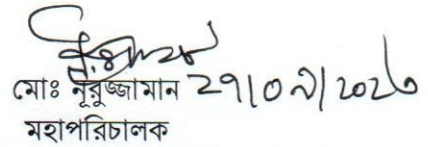 মোঃ নূরুজ্জামান ২৭|০৯|২০২৩
মহাপরিচালক